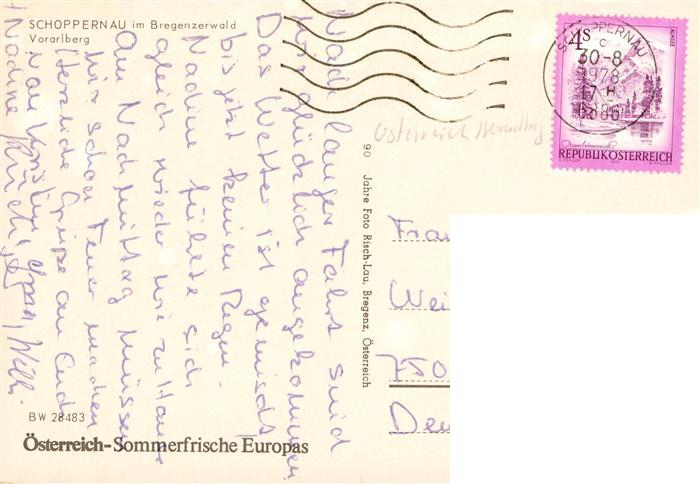 SCHOPPERNAU im Bregenzerwald
Vorarlberg
Nach langer Fahrt sind
wir glücklich angekommen
Das Wetter ist gemischt
bis jetzt keinen Regen.
Nadine fühlte sich
gleich wieder wie zu Hause
Am Nachmittag müssen
wir schon Feuer machen
Herzliche Grüße an Euch
von
Nadine Willi
BW 28483
Österreich-Sommerfrische Europas
90 Jahre Foto Risch-Lau, Bregenz, Österreich
Österreich Vorarlberg
SCHOPPERNAU
c
30-8
1978
17 H
6886
4S
REPUBLIK ÖSTERREICH
Frau
Wei
750
Deu